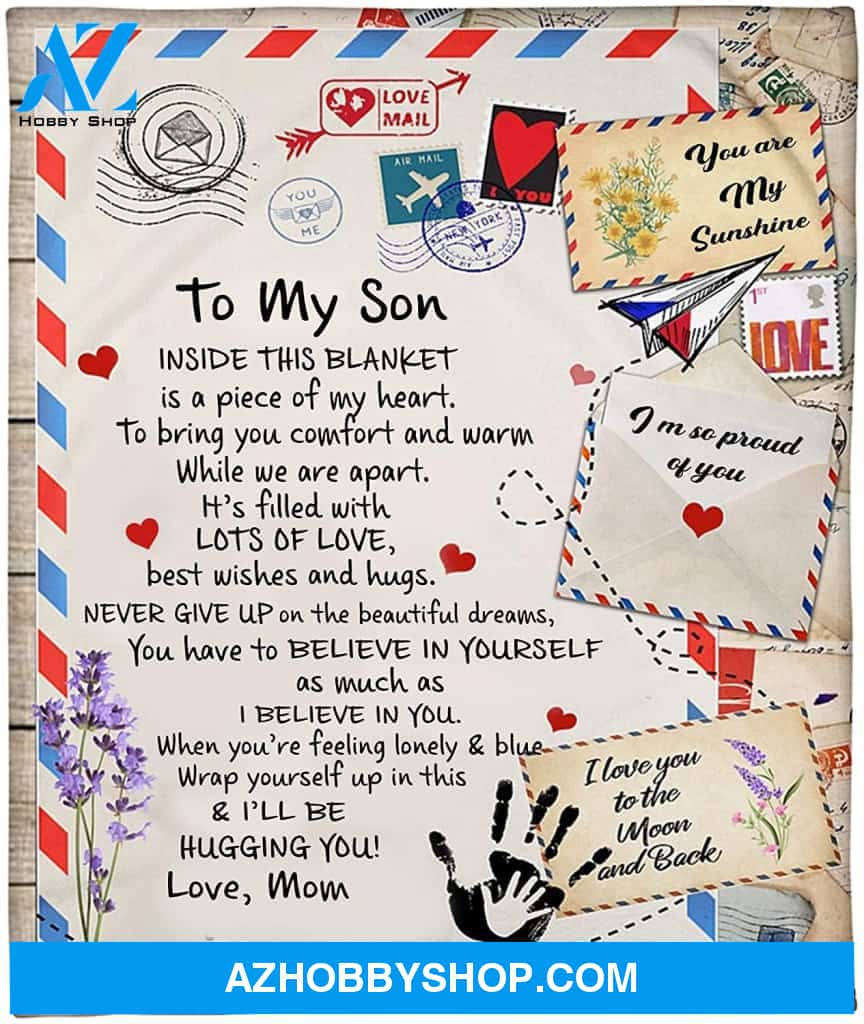 AZ
HOBBY SHOP
LOVE
MAIL
AIR MAIL
I YOU
YOU
ME
NEW YORK
You are
My
Sunshine
1ST
LOVE
To My Son
INSIDE THIS BLANKET
is a piece of my heart.
To bring you comfort and warm
While we are apart.
It's filled with
LOTS OF LOVE,
best wishes and hugs.
NEVER GIVE UP on the beautiful dreams,
You have to BELIEVE IN YOURSELF
as much as
I BELIEVE IN YOU.
When you're feeling lonely & blue
Wrap yourself up in this
& I'LL BE
HUGGING YOU!
Love, Mom
I m so proud
of you
I love you
to the
Moon
and Back
AZHOBBYSHOP.COM